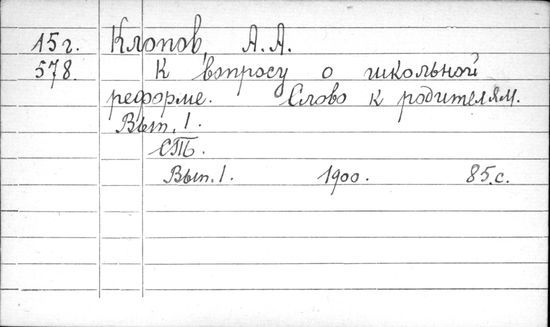 15г. Клопов, А.А.
578. К вопросу о школьной
реформе. Слово к родителям.
Вып. 1.
СПб.
Вып. 1. 1900. 85.с.